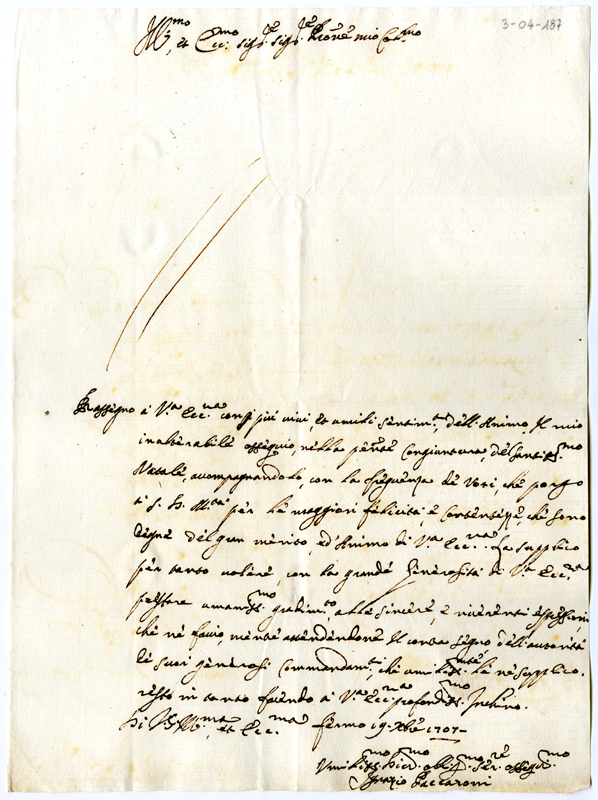 3-04-187
Ill.mo, et Ecc.mo Sig.re Sig.re P.rone mio Col.mo
Rassegno à V.ra Ecc.na con i più vivi, et umili sentim.ti dell'Animo, Il mio
inalterabile ossequio, nella p.nte Congiuntura, del Santiss.mo
Natale, acompagnandolo, con la frequenza de Voti, che porgo
à S. D. M.tà per le maggiori felicità, e Contentezze, che sono
degne del gran merito, ed Animo di V.ra Ecc.na. La supplico
per tanto volere, con la grande Generosità di V.ra Ecc.za
prestare umaniss.mo gradim.to, alle sincere, e riverenti espressioni
che ne faccio, mentre attendendone Il contra segno dell'autorità
de suoi generosi Commandam.ti, che umiliss.mte le ne supplico.
resto in tanto facendo à V.ra Ecc.na profondiss.mo Inchino.
Di V.S. Ill.ma, et Ecc.ma Fermo 19 Xbre 1707
Umiliss.mo Div.mo oblig.mo Ser.re osseq.mo
Ignazio Paccaroni